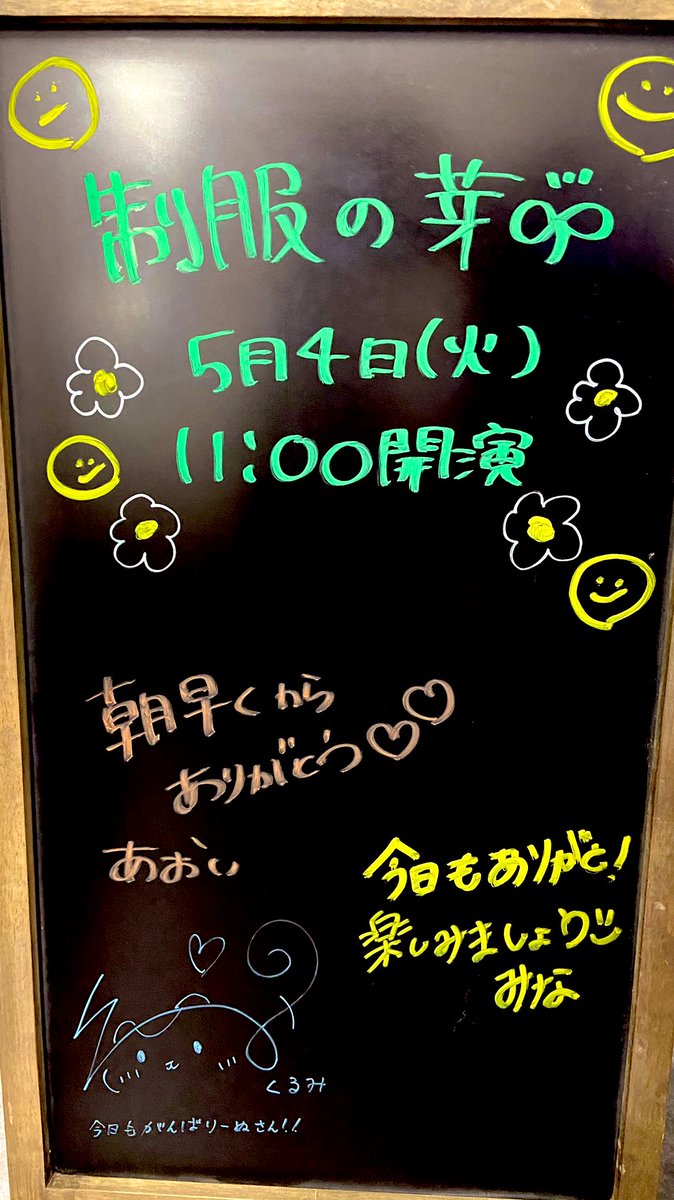 制服の芽
5月4日(火)
11:00開演
朝早くから
ありがとう♡♡
あおい
今日もありがと!
楽しみましょう
みな
くるみ
今日もがんばりーぬさん!!